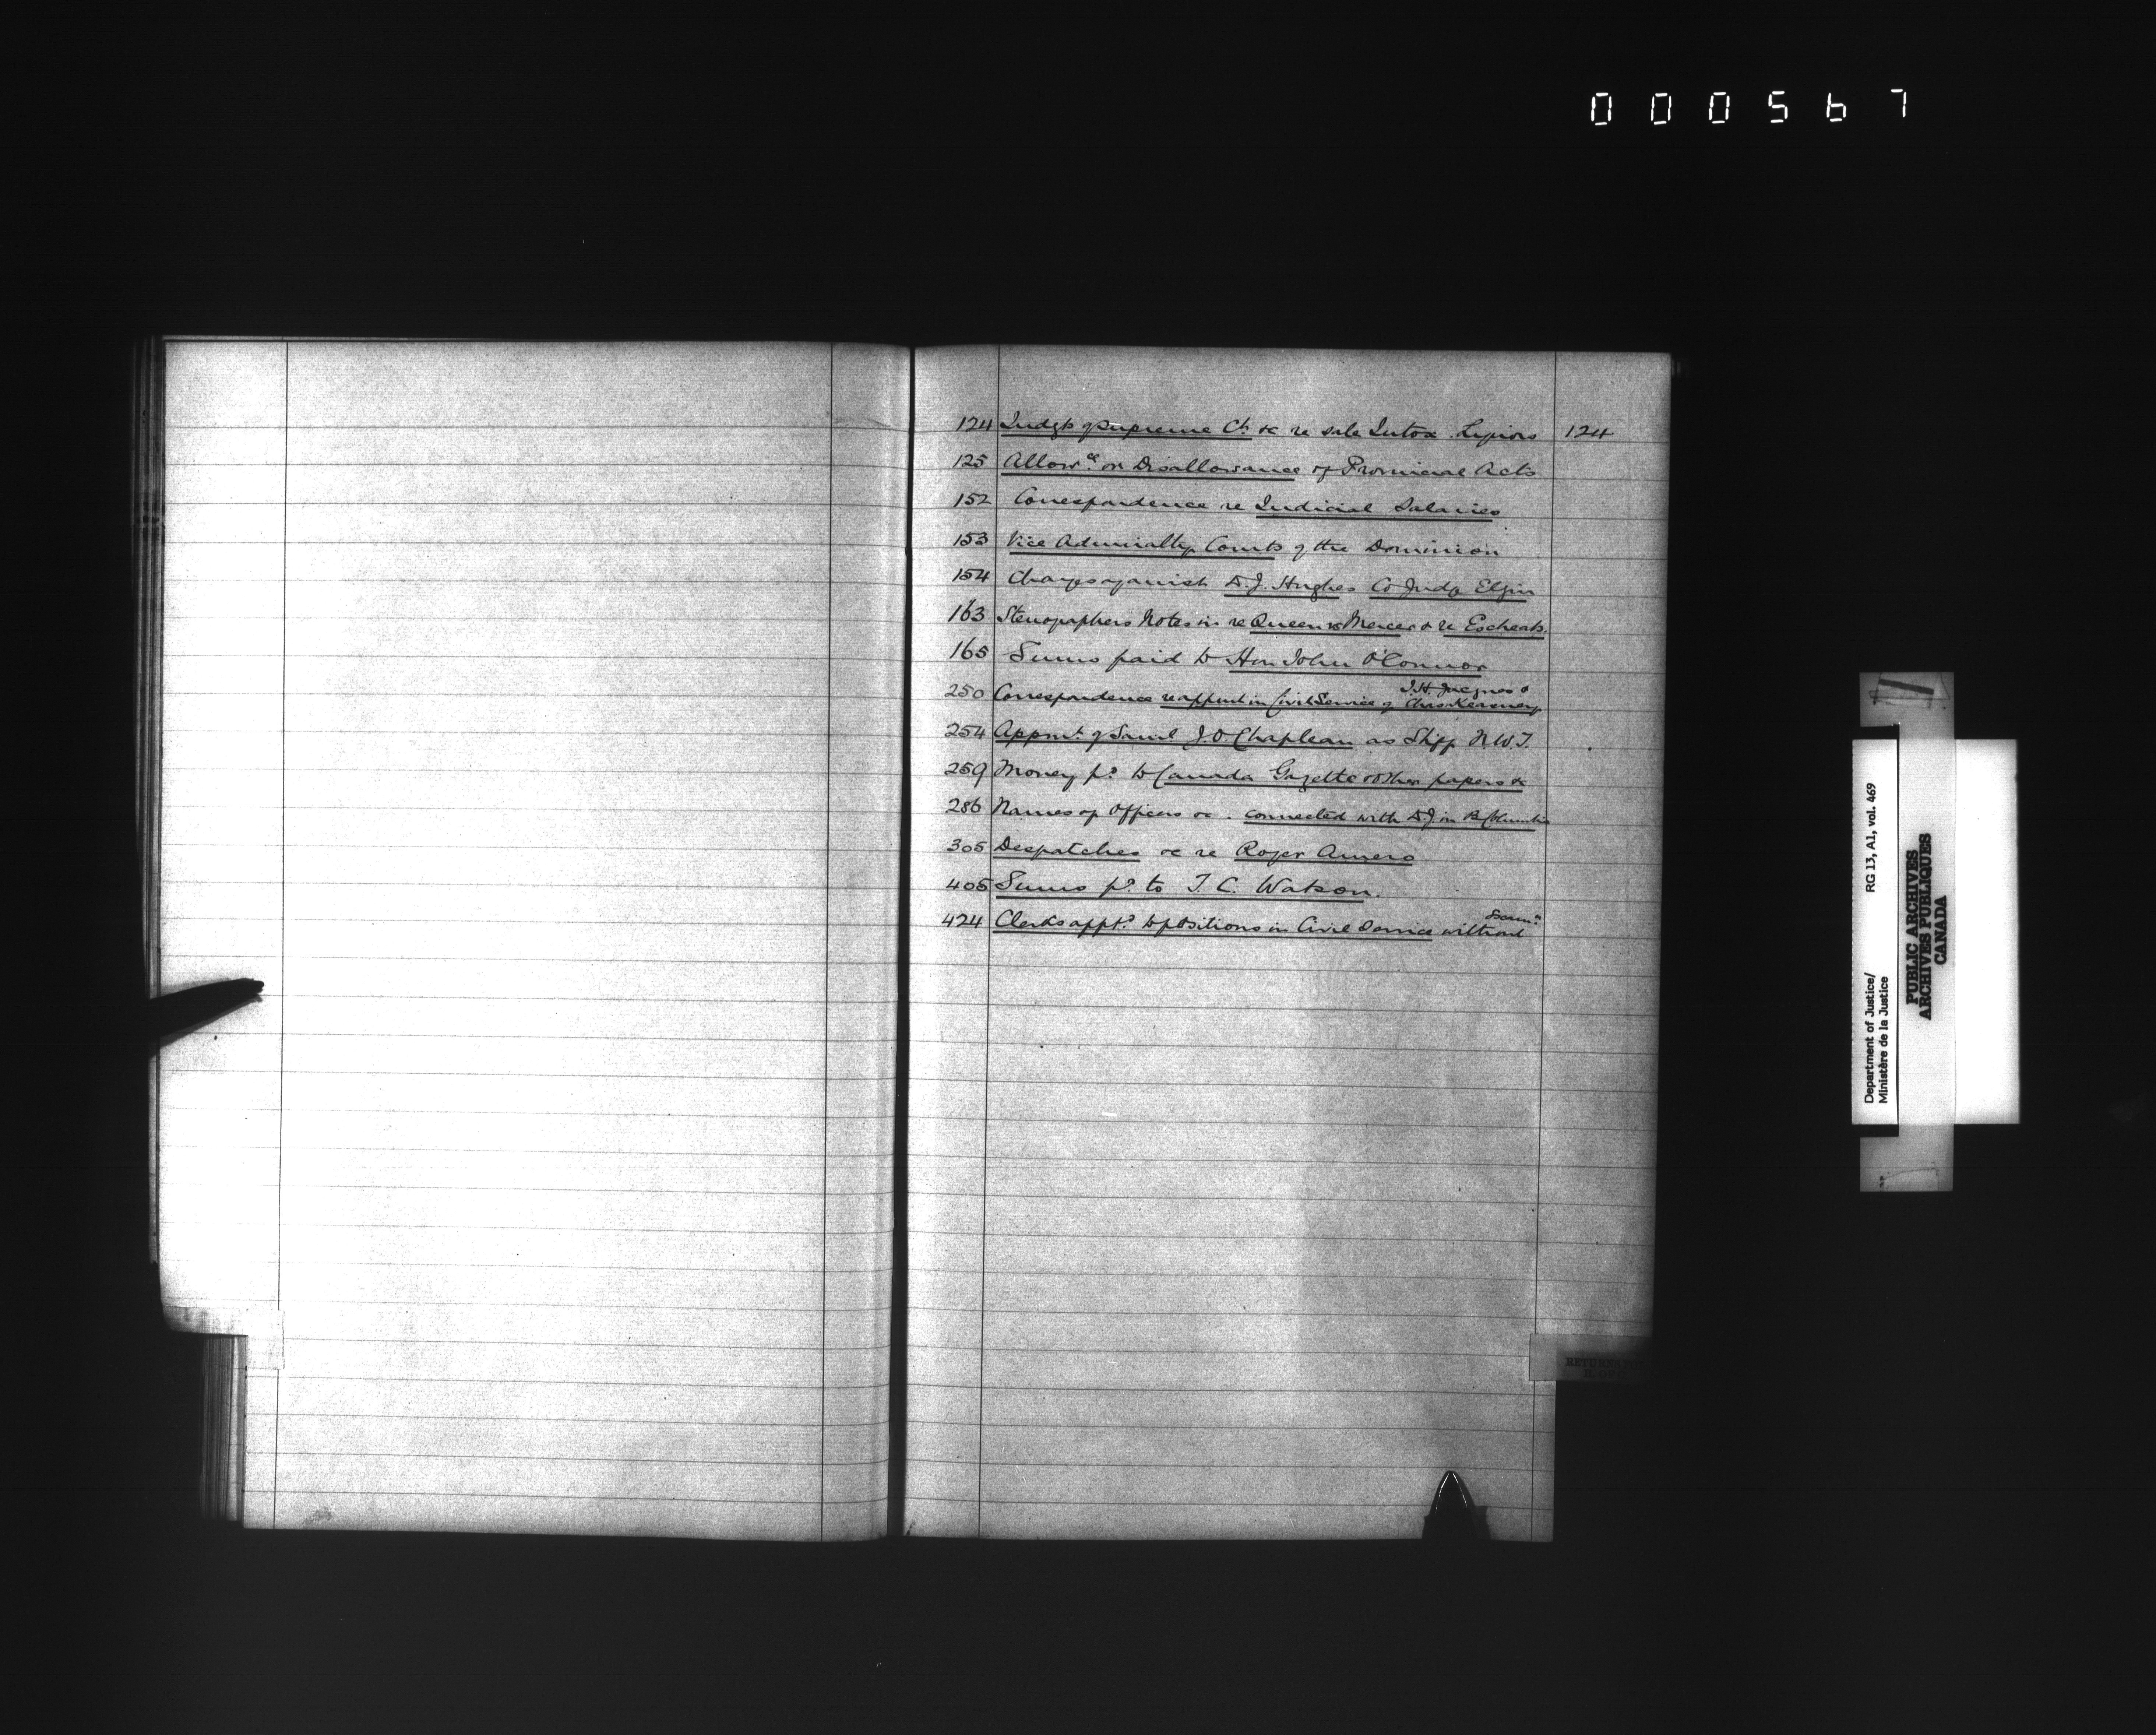 000567
124 Judgt of Supreme Ct. &c re sale Intox. Liquors 124
125 Allowce. or Disallowance of Provincial Acts
152 Correspondence re Judicial Salaries
153 Vice Admiralty Courts of the Dominion
154 Charges against D.J. Hughes Co Judge Elgin
163 Stenographers Notes in re Queen vs Mercer & re Escheats.
165 Sums paid to Hon John O'Connor
250 Correspondence re appmt in Civil Service of J.H. Jacques & Chas Kearney
254 Appmt. of Saml J.O. Chapleau as Shff N.W.T.
259 Money pd. to Canada Gazette & other papers &c
286 Names of Officers &c. connected with D.J. in B. Columbia
305 Despatches &c re Roger Amero
405 Sums pd. to T.C. Watson.
424 Clerks apptd. to positions in Civil Service without Exam:
RETURNS
Department of Justice/ RG 13, A1, vol. 469
Ministère de la Justice
PUBLIC ARCHIVES
ARCHIVES PUBLIQUES
CANADA